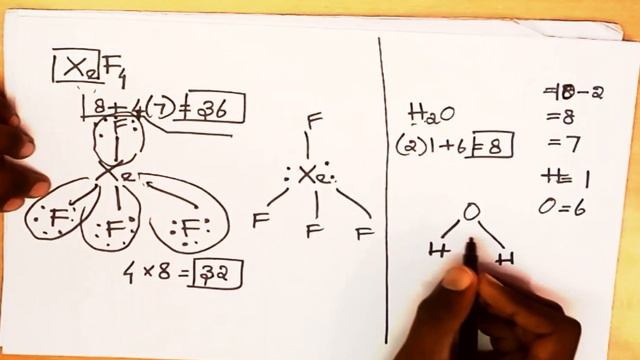 XeF4
8+4(7)=36
F
Xe
F F F
4×8=32
F
:Xe:
F F F
H2O
(2)1+6=8
O
H H
=18-2
=8
=7
H=1
O=6